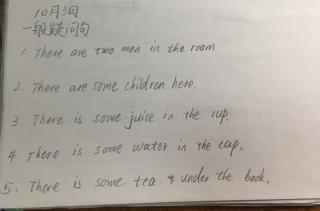 10月3日
一般疑问句
1. There are two men in the room
2. There are some children here.
3. There is some juice in the cup.
4 There is some water in the cup.
5. There is some tea under the book.